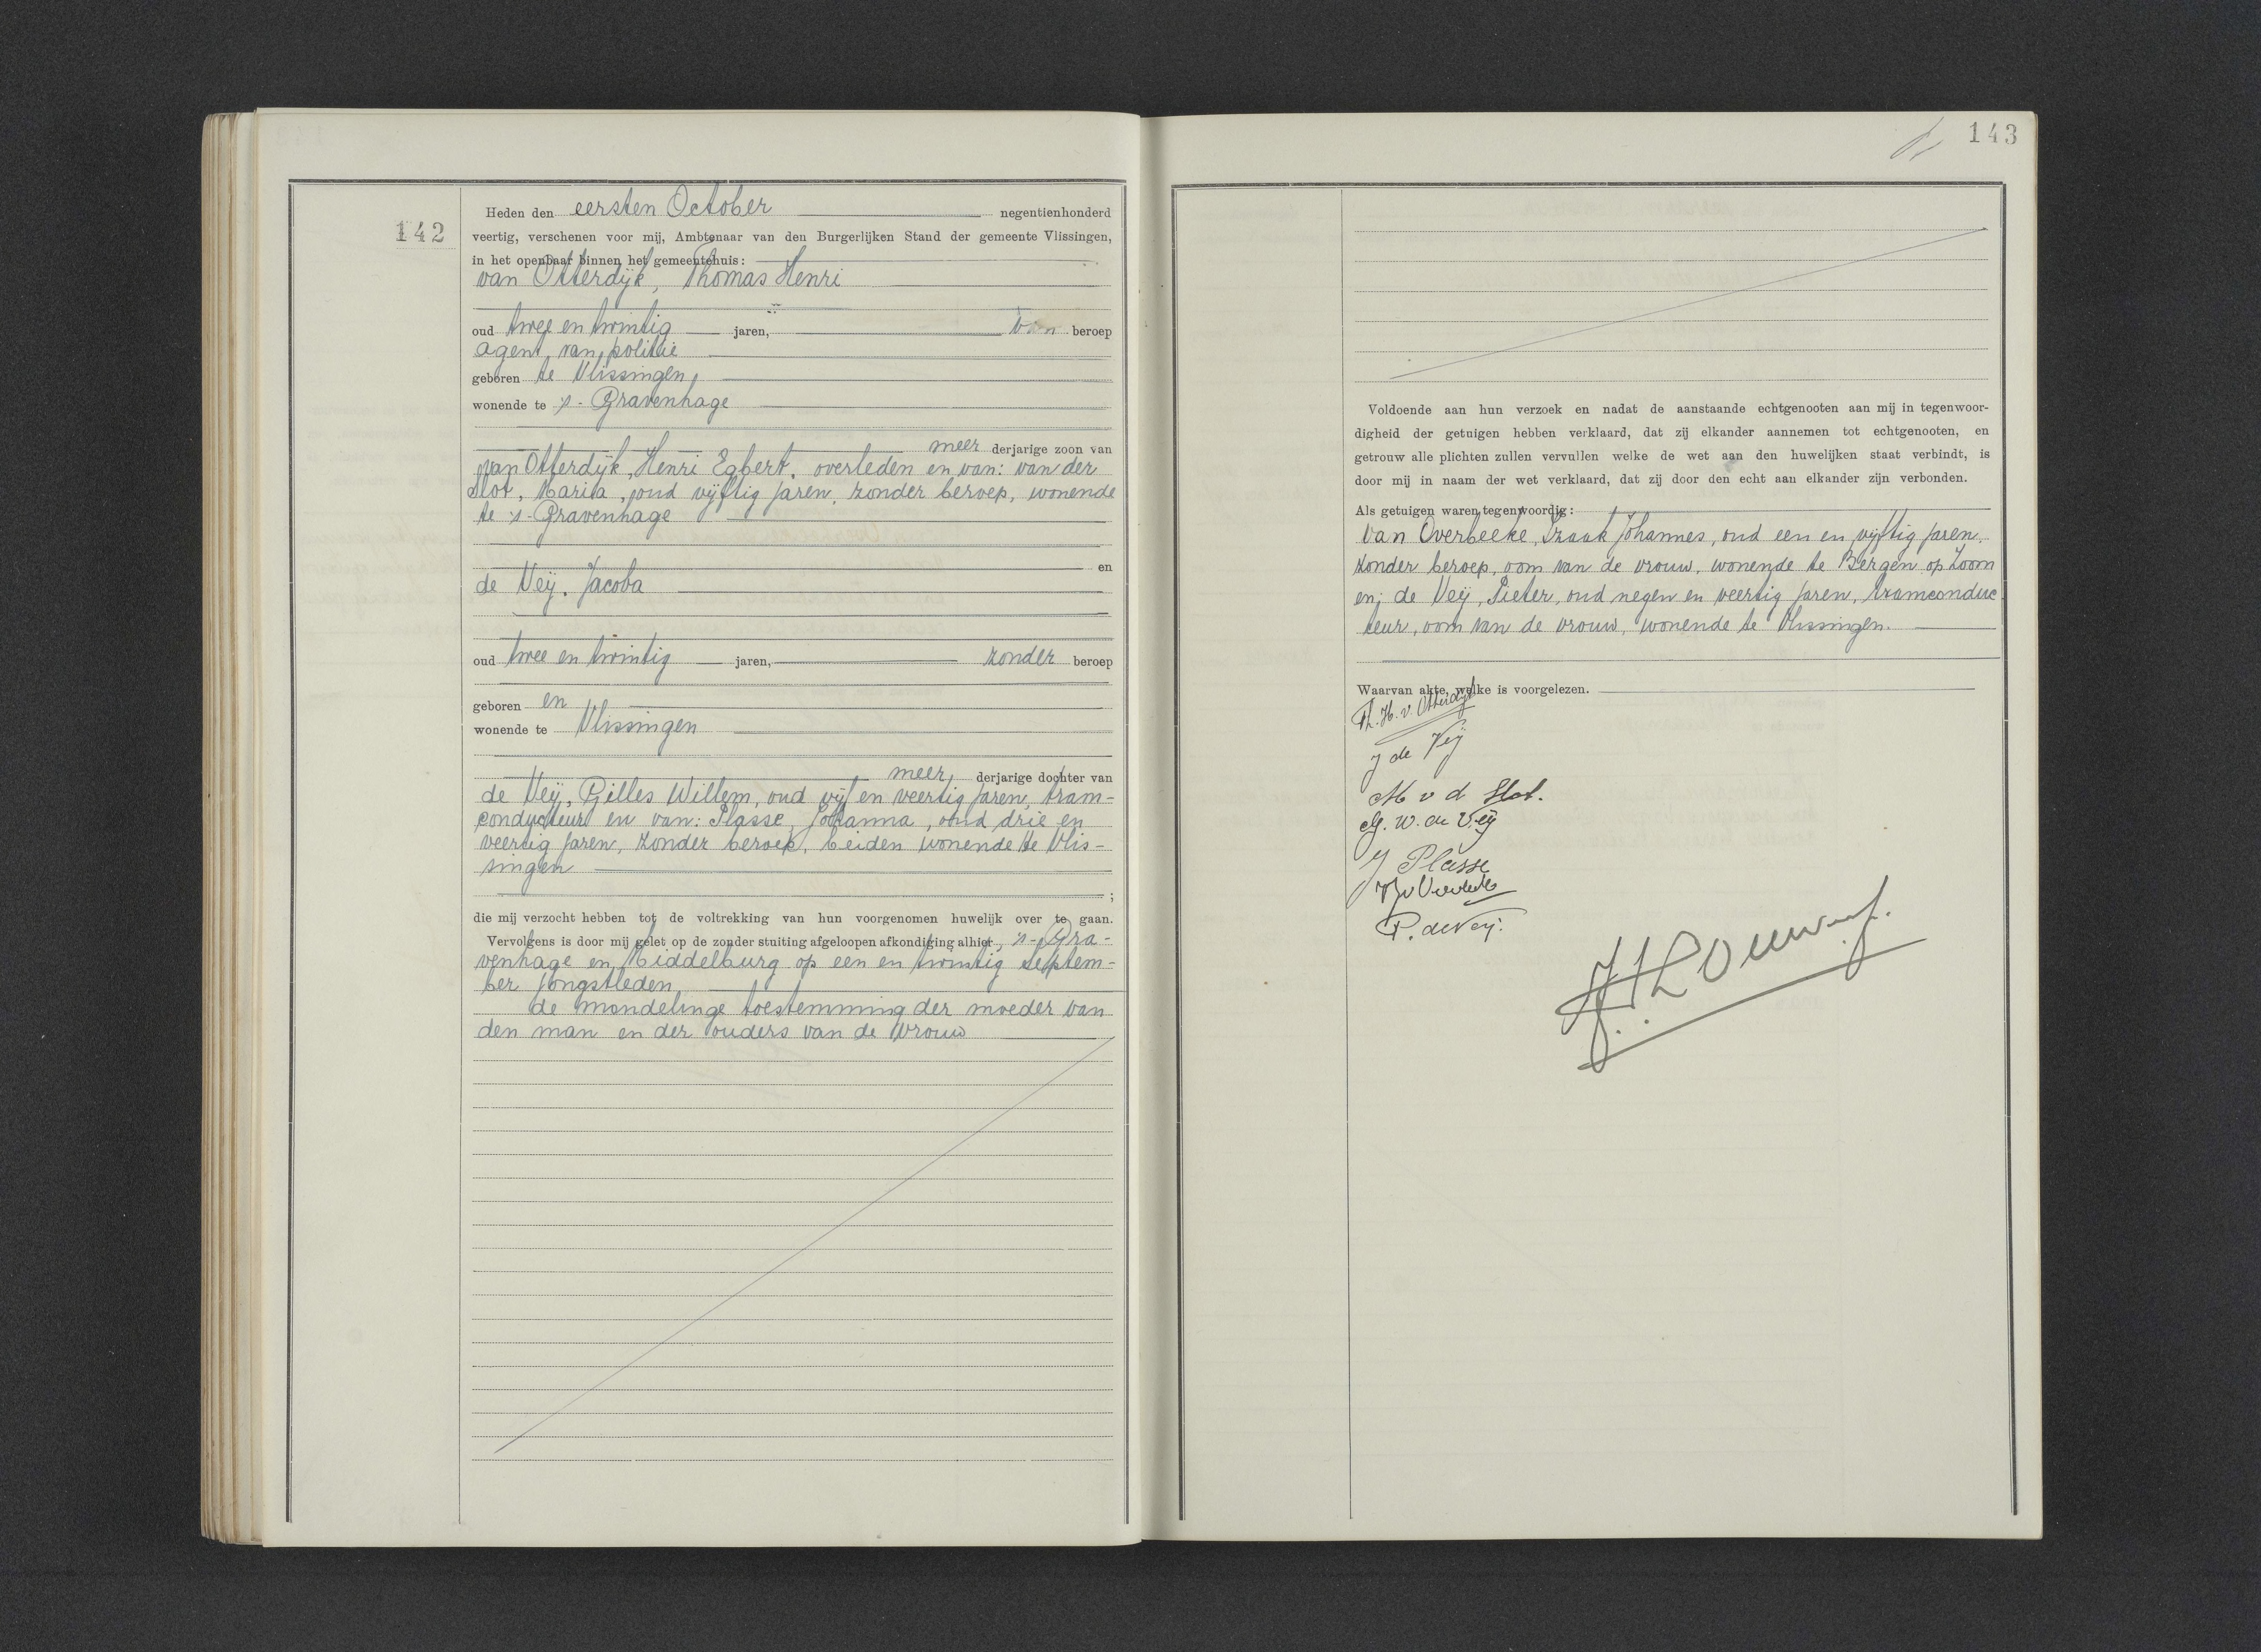 142
Heden den eersten October negentienhonderd
veertig, verschenen voor mij, Ambtenaar van den Burgerlijken Stand der gemeente Vlissingen,
in het openbaar binnen het gemeentehuis:
van Otterdijk, Thomas Henri
oud twee en twintig jaren, van beroep
agent van politie
geboren te Vlissingen,
wonende te 's-Gravenhage
meer derjarige zoon van
van Otterdijk, Henri Egbert, overleden en van: van der
Slot, Maria, oud vijftig jaren, zonder beroep, wonende
te 's-Gravenhage
en
de Veij, Jacoba
oud twee en twintig jaren, zonder beroep
geboren en
wonende te Vlissingen
meer derjarige dochter van
de Veij, Gilles Willem, oud vijf en veertig jaren, tram-
conducteur en van: Plasse, Johanna, oud drie en
veertig jaren, zonder beroep, beiden wonende te Vlis-
singen
;
die mij verzocht hebben tot de voltrekking van hun voorgenomen huwelijk over te gaan.
Vervolgens is door mij gelet op de zonder stuiting afgeloopen afkondiging alhier, 's-Gra-
venhage en Middelburg op een en twintig Septem-
ber jongstleden,
de mondelinge toestemming der moeder van
den man en der ouders van de vrouw
143
Voldoende aan hun verzoek en nadat de aanstaande echtgenooten aan mij in tegenwoor-
digheid der getuigen hebben verklaard, dat zij elkander aannemen tot echtgenooten, en
getrouw alle plichten zullen vervullen welke de wet aan den huwelijken staat verbindt, is
door mij in naam der wet verklaard, dat zij door den echt aan elkander zijn verbonden.
Als getuigen waren tegenwoordig:
van Overbeeke, Izaak Johannes, oud een en vijftig jaren,
zonder beroep, oom van de vrouw, wonende te Bergen op Zoom
en; de Veij, Pieter, oud negen en veertig jaren, tramconduc
teur, oom van de vrouw, wonende te Vlissingen.
Waarvan akte, welke is voorgelezen.
Th. H. v. Otterdijk
J de Veij
M v d Slot.
G. W. de Veij
J Plasse
P. de Veij.